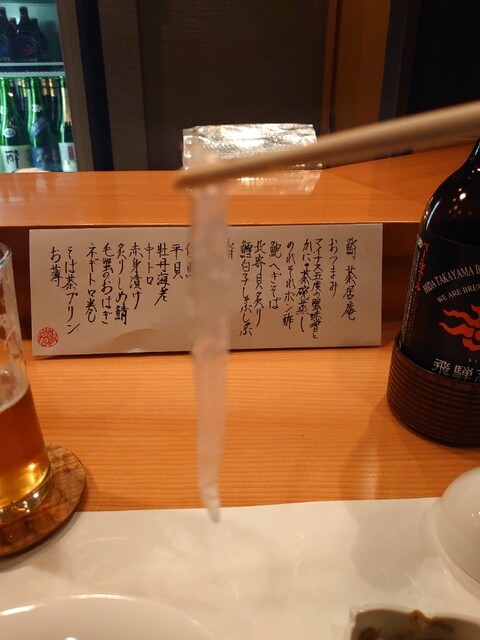 鮨 茶居庵
おつまみ
マイナス五度の蟹味噌と
かに茶碗蒸し
のれそれポン酢
鮑へぎそば
北寄貝の炙り
鱈白子しそ
鮨
平貝
牡丹海老
中トロ
赤身漬け
炙りしめ鯖
毛蟹のおはぎ
ネギトロ巻
そば茶プリン
お薄
HIDA TAKAYAMA
WE ARE BREW
飛騨